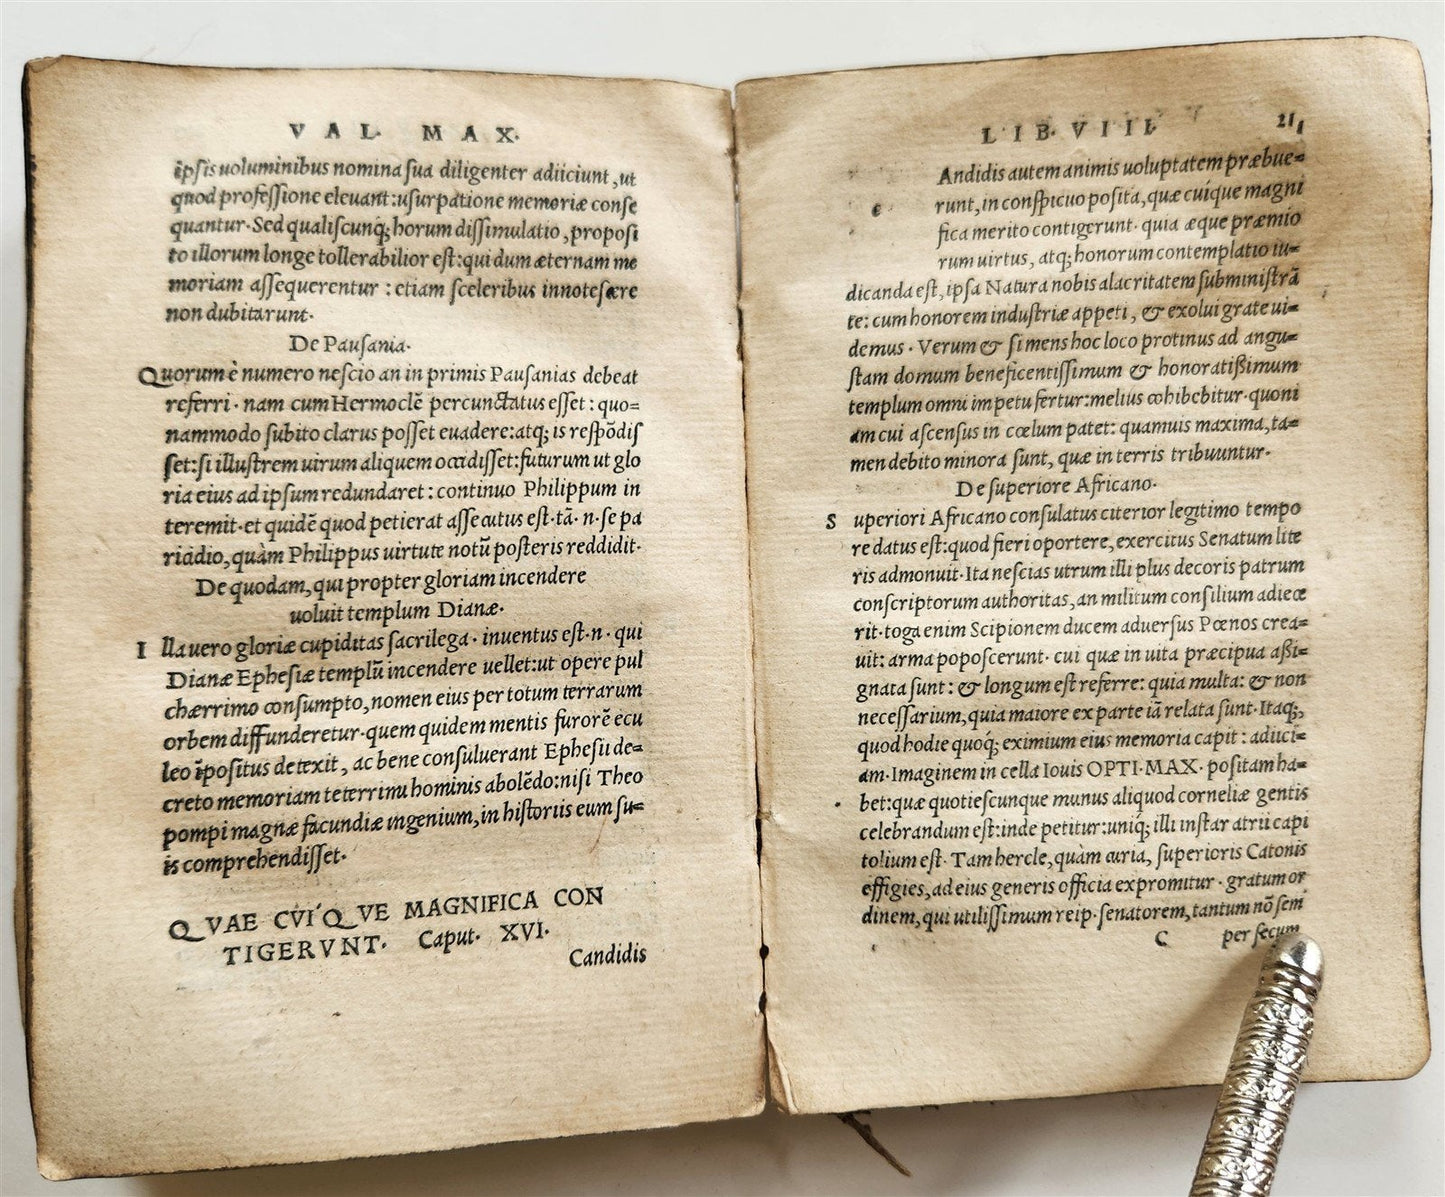 VAL. MAX.
ipsis uoluminibus nomina sua diligenter adiiciunt, ut
quod professione eleuant: usurpatione memoriæ conse
quantur. Sed qualiscunq; horum dissimulatio, proposi
to illorum longe tollerabilior est: qui dum æternam me
moriam assequerentur: etiam sceleribus innotescere
non dubitarunt.
De Pausania.
Quorum è numero nescio an in primis Pausanias debeat
referri. nam cum Hermoclẽ percunctatus esset: quo=
nammodo subito clarus posset euadere: atq; is respõdis
set: si illustrem uirum aliquem occidisset: futurum ut glo
ria eius ad ipsum redundaret: continuo Philippum in
teremit. et quidẽ quod petierat assecutus est. tã. n. se pa
ricidio, quàm Philippus uirtute notũ posteris reddidit.
De quodam, qui propter gloriam incendere
uoluit templum Dianæ.
Illa uero gloriæ cupiditas sacrilega. inuentus est. n. qui
Dianæ Ephesiæ templũ incendere uellet: ut opere pul
chærrimo consumpto, nomen eius per totum terrarum
orbem diffunderetur. quem quidem mentis furorẽ ecu
leo ĩpositus detexit, ac bene consuluerant Ephesii de=
creto memoriam teterrimi hominis abolẽdo: nisi Theo
pompi magnæ facundiæ ingenium, in historiis eum su=
is comprehendisset.
QVAE CVI´QVE MAGNIFICA CON
TIGERVNT. Caput. XVI.
Candidis
LIB. VIII. 211
c Andidis autem animis uoluptatem præbue=
runt, in conspicuo posita, quæ cuíque magni
fica merito contigerunt. quia æque præmio
rum uirtus, atq; honorum contemplatio iu=
dicanda est, ipsa Natura nobis alacritatem subministrã
te: cum honorem industriæ appeti, & exolui grate ui=
demus. Verum & si mens hoc loco protinus ad angu=
stam domum beneficentissimum & honoratißimum
templum omni impetu fertur: melius cohibebitur. quoni
am cui ascensus in cœlum patet: quamuis maxima, ta=
men debito minora sunt, quæ in terris tribuuntur.
De superiore Africano.
Superiori Africano consulatus citerior legitimo tempo
re datus est: quod fieri oportere, exercitus Senatum lite
ris admonuit. Ita nescias utrum illi plus decoris patrum
conscriptorum authoritas, an militum consilium adiece
rit. toga enim Scipionem ducem aduersus Pœnos crea=
uit: arma poposcerunt. cui quæ in uita præcipua aßi=
gnata sunt: & longum est referre: quia multa: & non
necessarium, quia maiore ex parte iã relata sunt. Itaq;,
quod hodie quoq́; eximium eius memoria capit: adiici=
am. Imaginem in cella Iouis OPTI. MAX. positam ha=
bet: quæ quotiescunque munus aliquod corneliæ gentis
celebrandum est: inde petitur: uniq́; illi instar atrii capi
tolium est. Tam hercle, quàm curia, superioris Catonis
effigies, ad eius generis officia expromitur. gratum or
dinem, qui utilissimum reip. senatorem, tantum nõ sem
C per secum